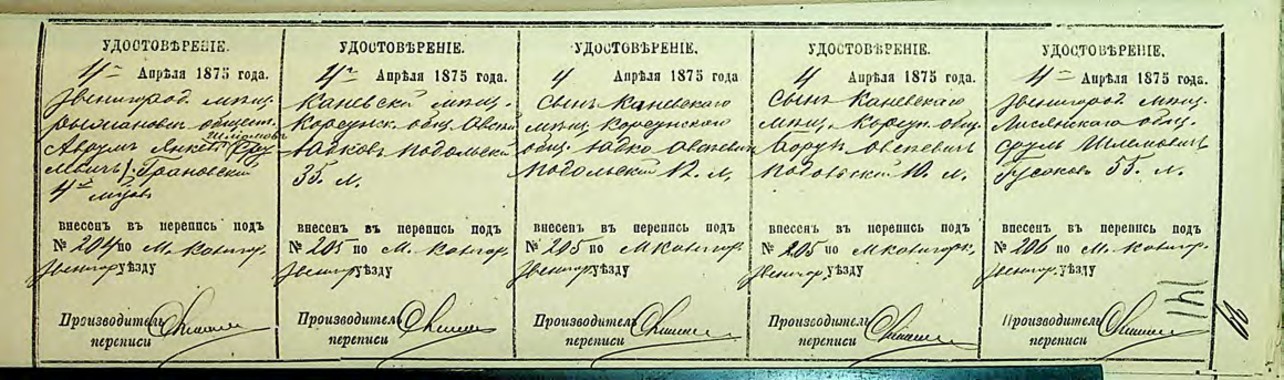 УДОСТОВѢРЕНІЕ.
4го Апрѣля 1875 года.
Звенигород. мѣщ.
обществ.
Шлiомовъ
Аврумъ Янкель Сру
левичъ Грановскій
4хъ
внесенъ въ перепись подъ
№ 204 по М. Кониор.
Звенигор. уѣзду
Производитель
переписи
УДОСТОВѢРЕНІЕ.
4го Апрѣля 1875 года.
Каневскій мѣщ.
Корсунск. общ. Овсій
Юдковъ Подольскій
35. л.
внесенъ въ перепись подъ
№ 205 по М. Кониор.
Звенигор. уѣзду
Производитель
переписи
УДОСТОВѢРЕНІЕ.
4 Апрѣля 1875 года
Сынъ Каневскаго
мѣщ. Корсунскаго
общ. Юдко Овсеевичъ
Подольскій 12. л.
внесенъ въ перепись подъ
№ 205 по М. Кониор.
Звенигор. уѣзду
Производитель
переписи
УДОСТОВѢРЕНІЕ.
4 Апрѣля 1875 года.
Сынъ Каневскаго
мѣщ. Корсун. общ.
Борух Овсеевичъ
Подольскій 10. л.
внесенъ въ перепись подъ
№ 205 по М. Кониор.
Звенигор. уѣзду
Производитель
переписи
УДОСТОВѢРЕНІЕ.
4го Апрѣля 1875 года.
Звенигород. мѣщ.
Лисянскаго общ.
Сруль Шлемовичъ
Гусаковъ 55. л.
внесенъ въ перепись подъ
№ 206 по М. Кониор.
Звенигор. уѣзду
Производитель
переписи